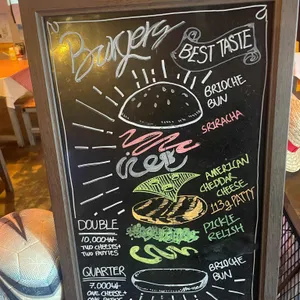 Burgers
BEST TASTE
BRIOCHE
BUN
SRIRACHA
AMERICAN
CHEDDAR
CHEESE
113g PATTY
PICKLE
RELISH
DOUBLE
10,000₩
TWO CHEESES+
TWO PATTIES
QUARTER
7,000₩
ONE CHEESE+
BRIOCHE
BUN